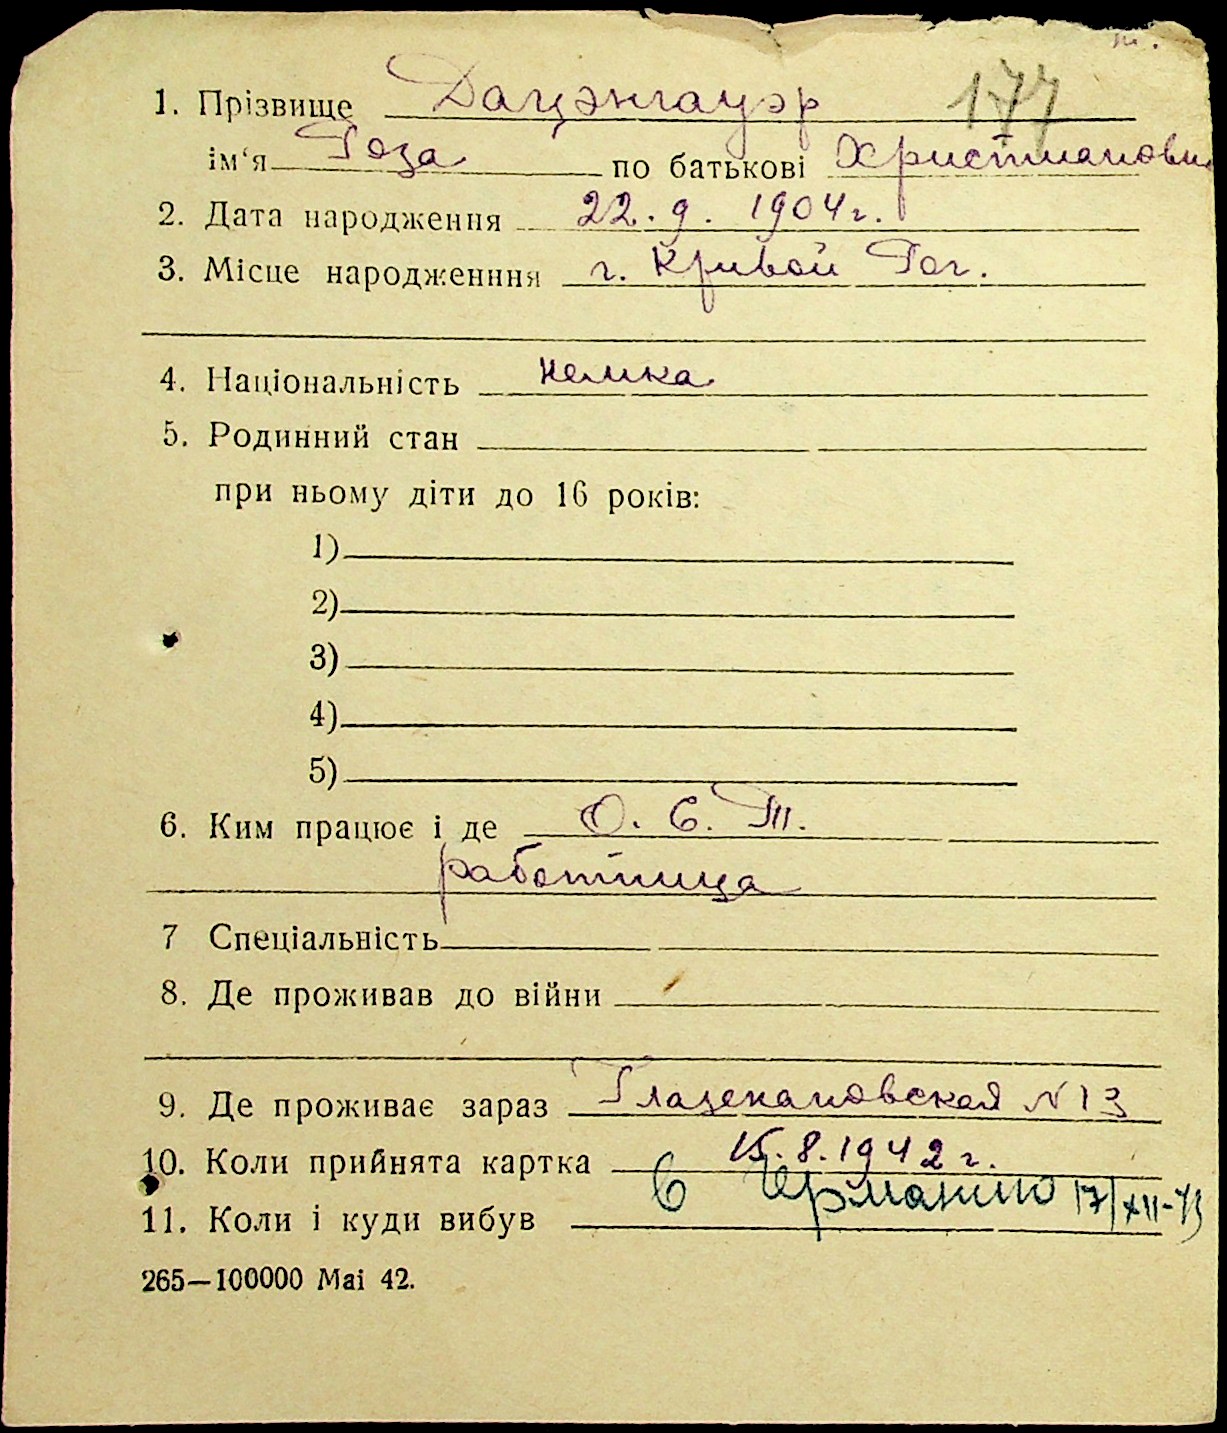 т.
177
1. Прізвище Дацэнгауэр
ім‘я Роза по батькові Христиановн
2. Дата народження 22. 9. 1904 г.
3. Місце народженння г. Кривой Рог.
4. Національність немка
5. Родинний стан
при ньому діти до 16 років:
1)
2)
3)
4)
5)
6. Ким працює і де О. С. Т.
работница
7 Спеціальність
8. Де проживав до війни
9. Де проживає зараз № 13
10. Коли прийнята картка 15. 8. 1942 г.
11. Коли і куди вибув в Германию 17/XII-43
265—100000 Mai 42.